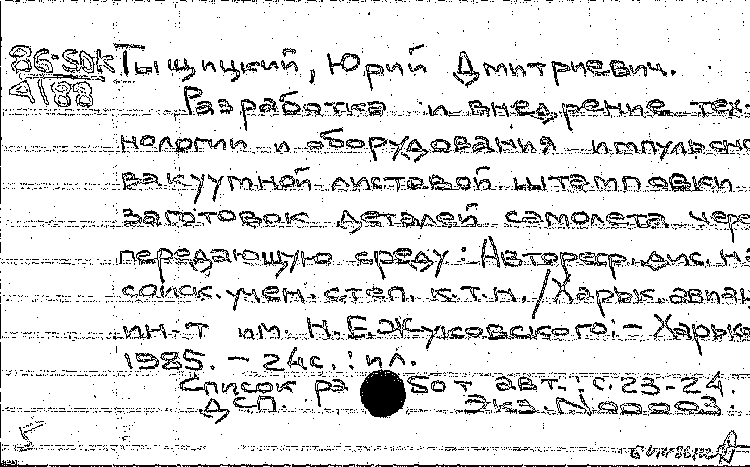 86-5ДК Тыщицкий, Юрий Дмитриевич.
4188
Разработка и внедрение тех-
нологии и оборудования импульсно
вакуумной листовой штамповки
заготовок деталей самолета чере
передающую среду: Автореф. дис. на
соиск. учен. степ. к.т.н. / Харьк. авиац
ин-т им. Н.Е.Жуковского. - Харько
1985. - 24с.: ил.
Список работ авт.: с.23-24.
ДСП. Экз. N 00003
5